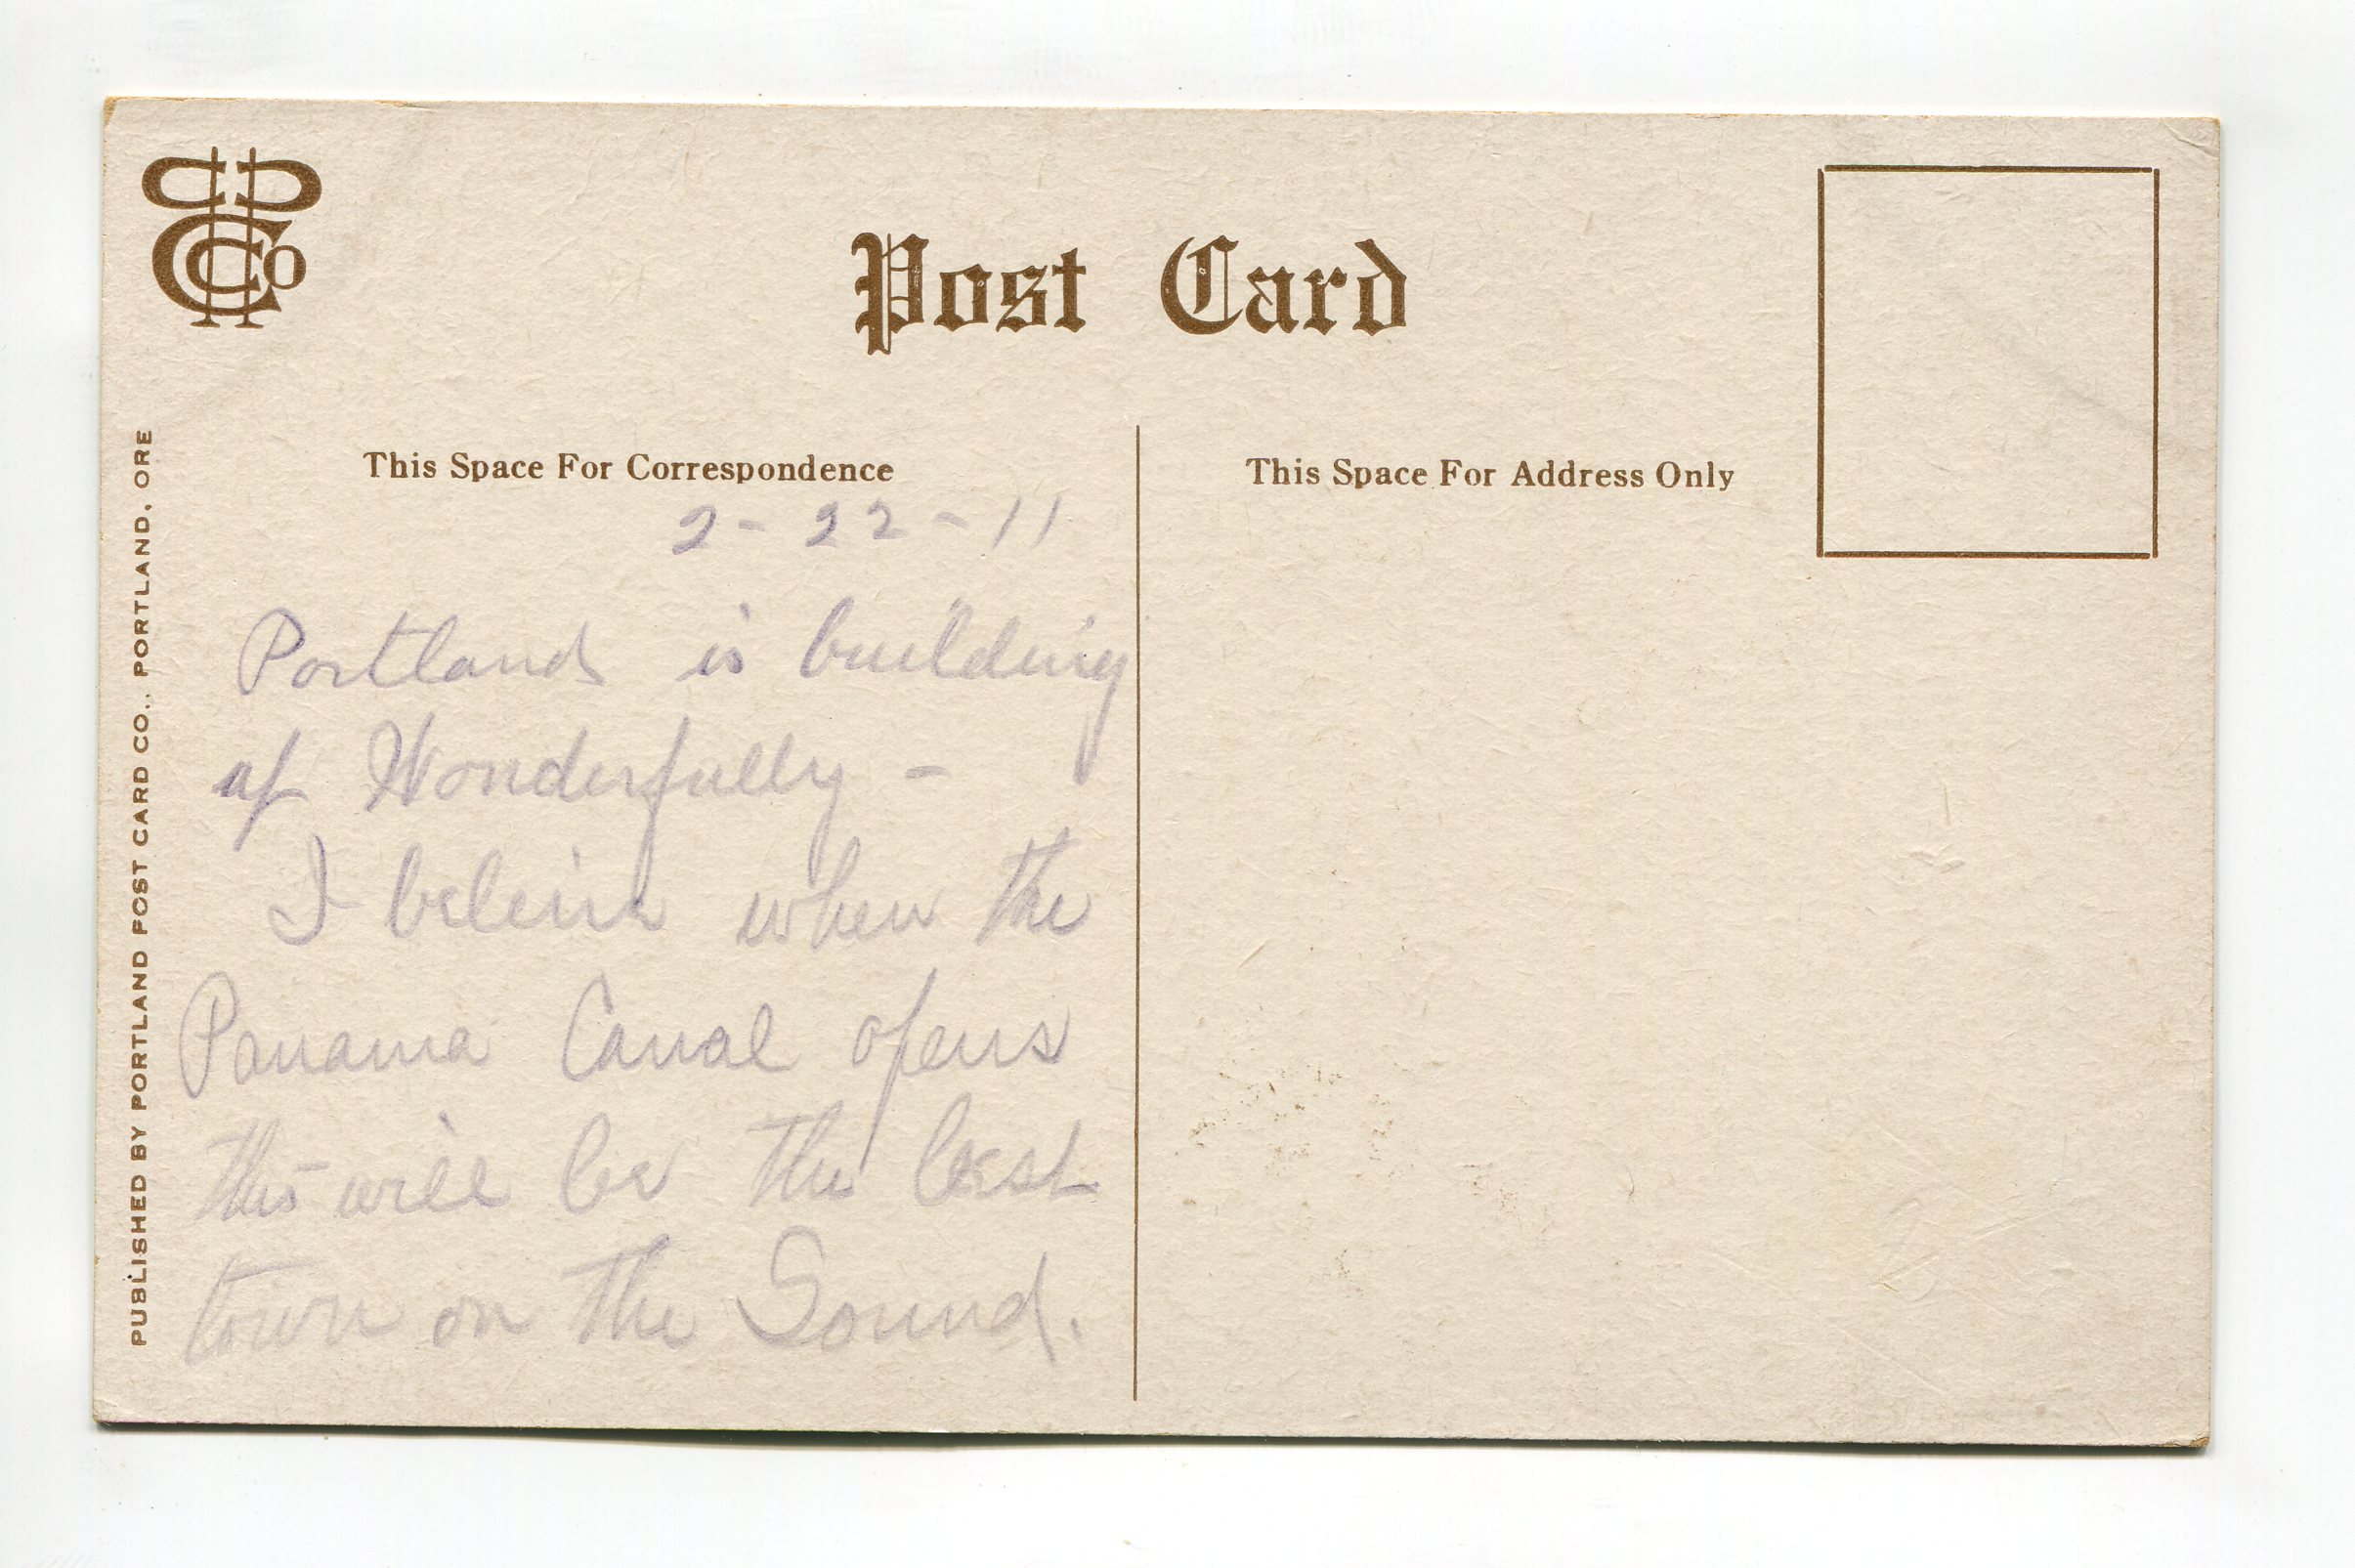 PPCCo
Post Card
This Space For Correspondence
This Space For Address Only
PUBLISHED BY PORTLAND POST CARD CO., PORTLAND, ORE
2-22-11
Portland is building
up Wonderfully -
I beleive when the
Panama Canal opens
this will be the best
town on the Sound.